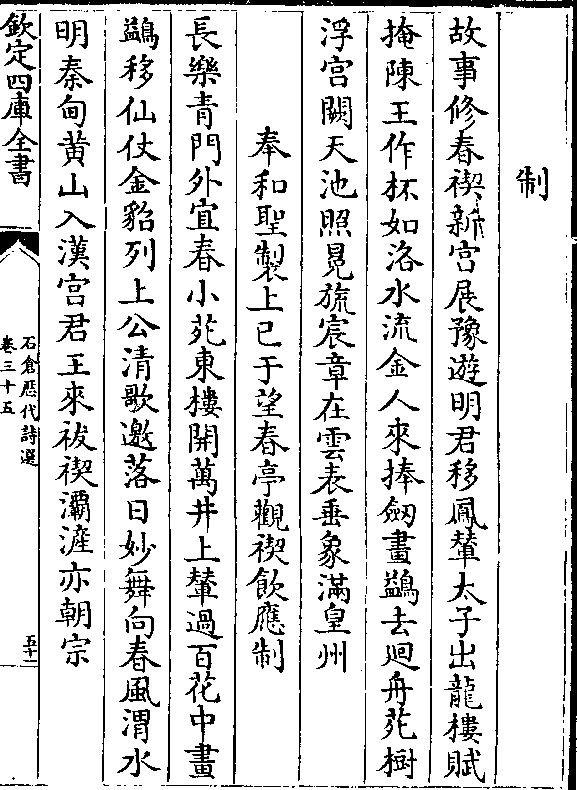 制
故事修春禊新宫展豫遊明君移鳳輦太子出龍樓賦
掩陳王作杯如洛水流金人來捧劒畫鷁去廻舟苑樹
浮宫闕天池照冕旒宸章在雲表垂象滿皇州
奉和聖製上已于望春亭觀禊飲應制
長樂青門外宜春小苑東樓開萬井上輦過百花中畫
鷁移仙仗金貂列上公清歌邀落日妙舞向春風渭水
明秦甸黄山入漢宫君王來祓禊灞滻亦朝宗
欽定四庫全書
石倉歴代詩選
卷三十五
五十二